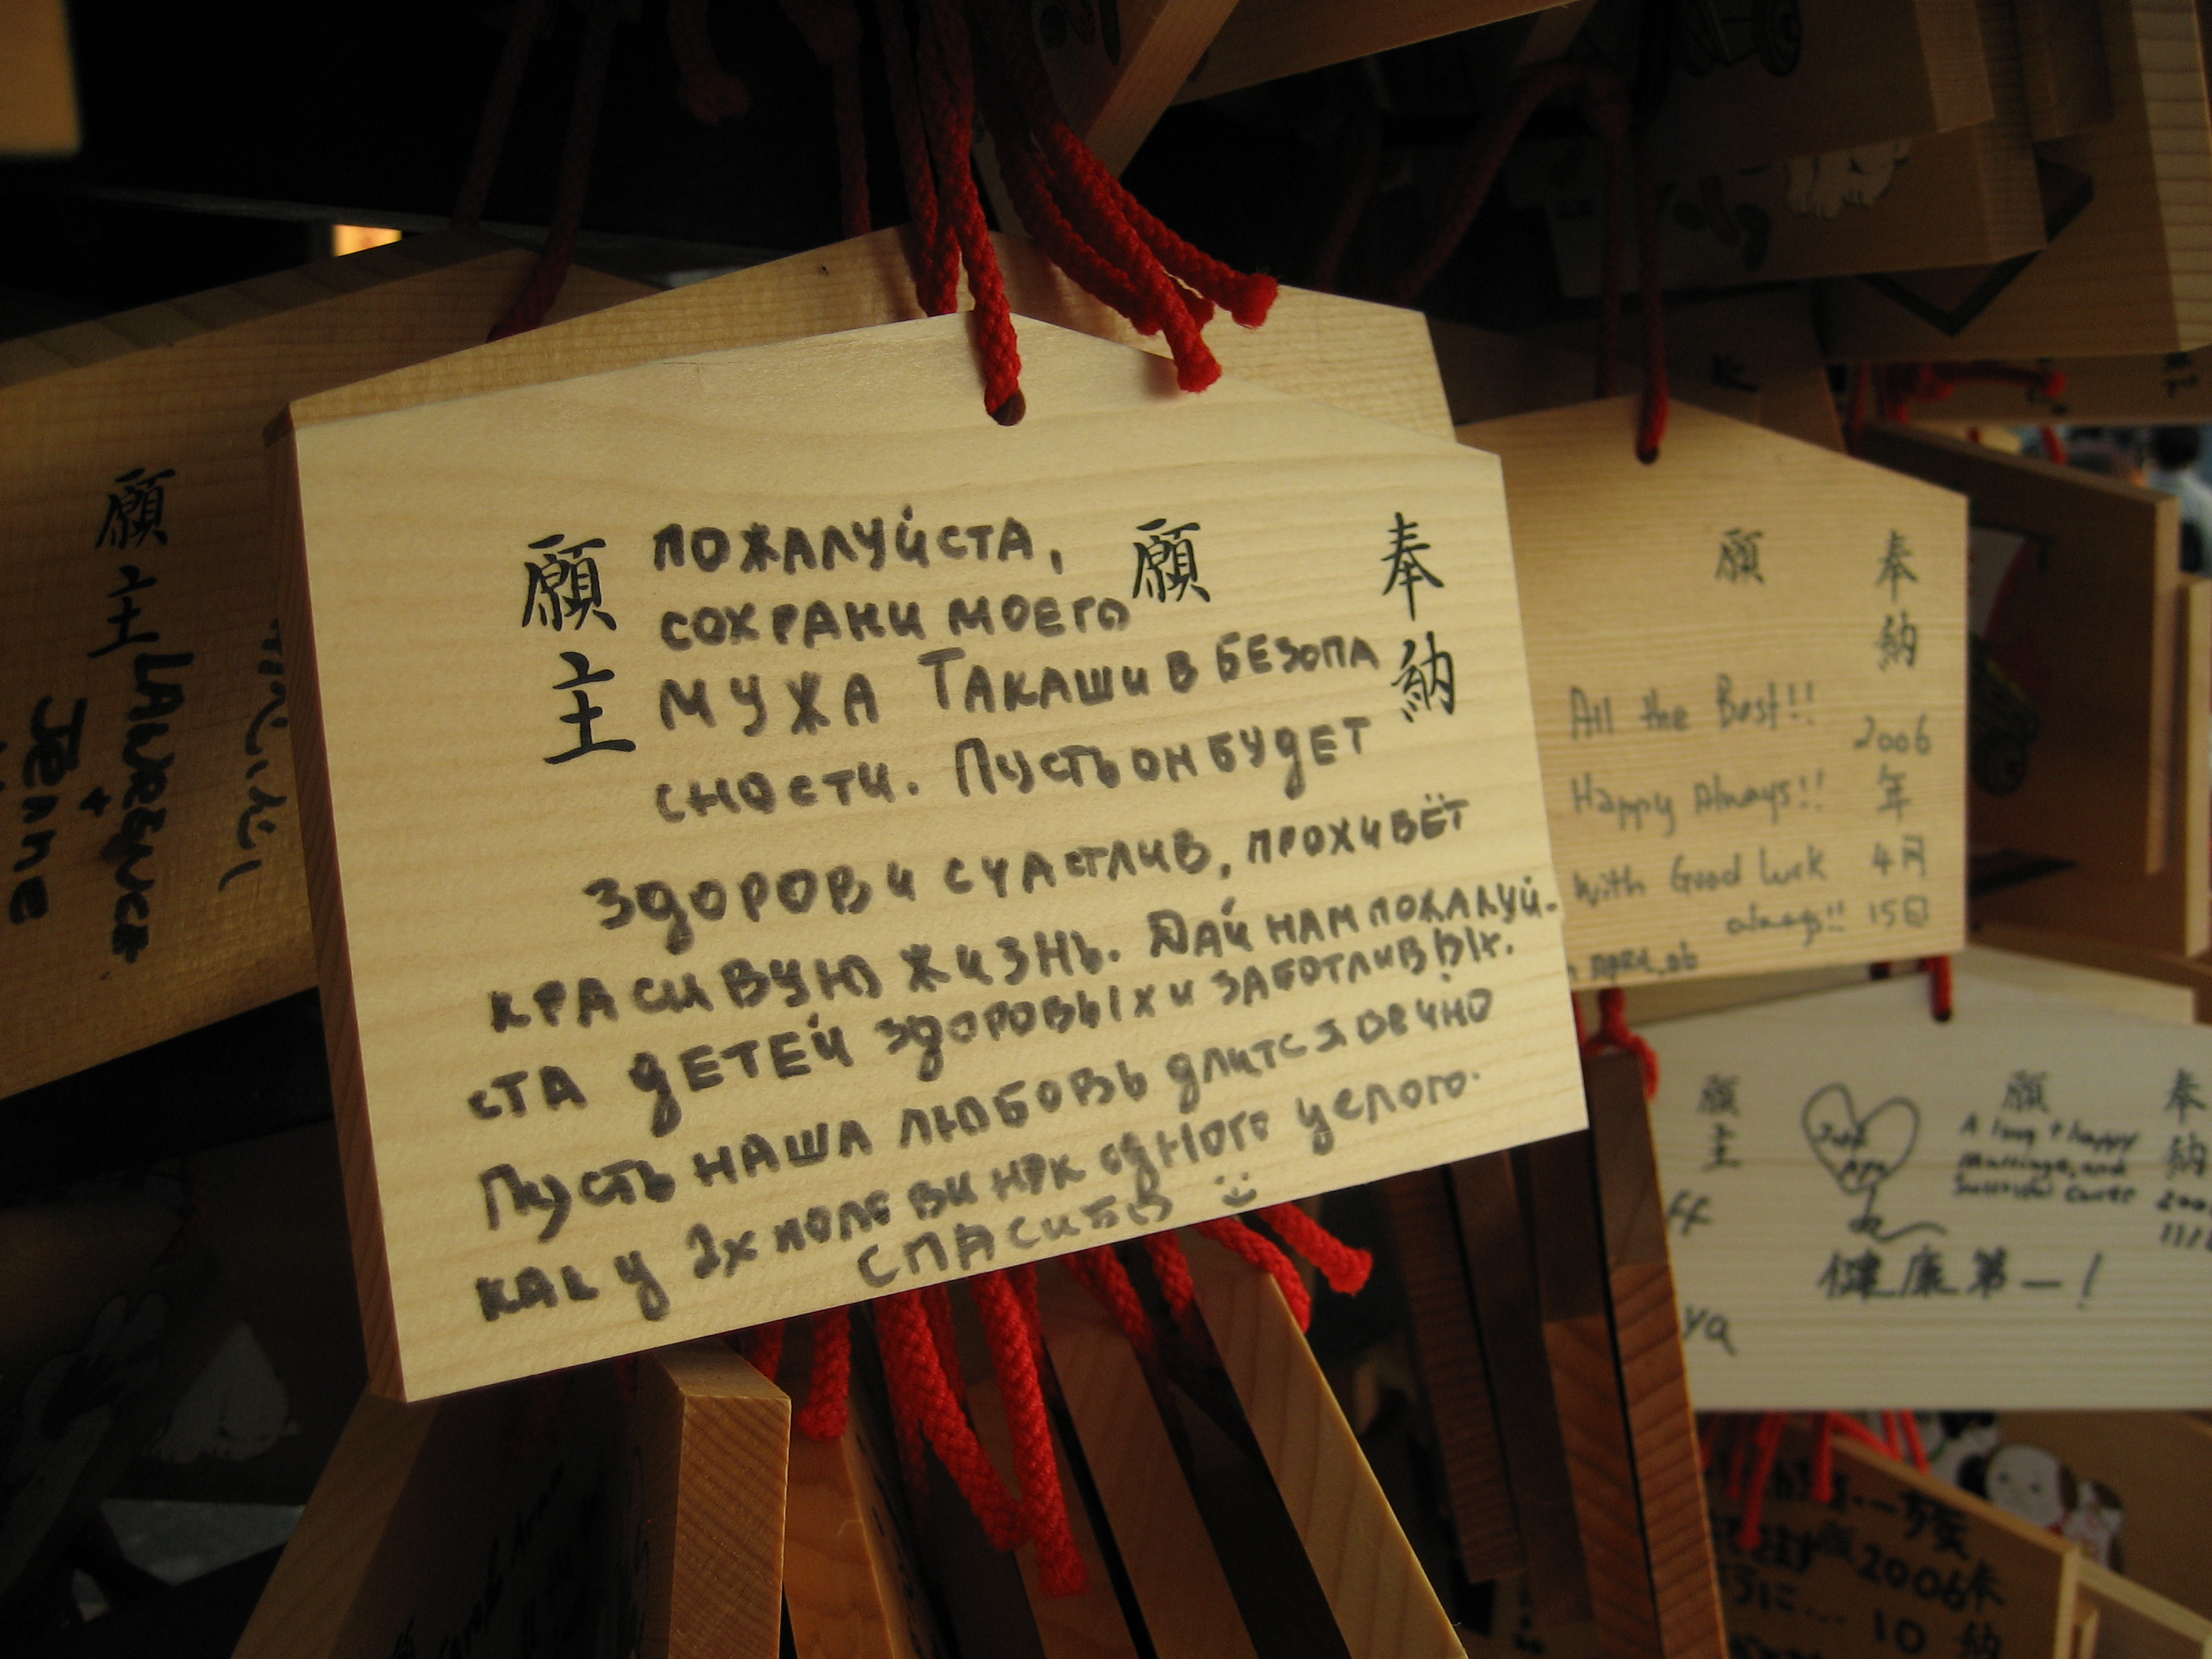 奉納
願
願主
ПОЖАЛУЙСТА,
СОХРАНИ МОЕГО
МУЖА ТАКАШИ В БЕЗОПА
СНОСТИ. ПУСТЬ ОН БУДЕТ
ЗДОРОВ И СЧАСТЛИВ, ПРОЖИВЁТ
КРАСИВУЮ ЖИЗНЬ. ДАЙ НАМ ПОЖАЛУЙ-
СТА ДЕТЕЙ ЗДОРОВЫХ И ЗАБОТЛИВЫХ.
ПУСТЬ НАША ЛЮБОВЬ ДЛИТСЯ ВЕЧНО
КАК У 2Х ПОЛОВИНОК ОДНОГО ЦЕЛОГО.
СПАСИБО
願主
LAWRENCE
+
Jenne
奉納
願
2006
年
4月
15日
All the Best!!
Happy Always!!
with Good Luck
always!!
奉納
願
願主
A long + happy
Marriage, and
Successful Career
健康第一!
ff
ya
2006
奉納
10